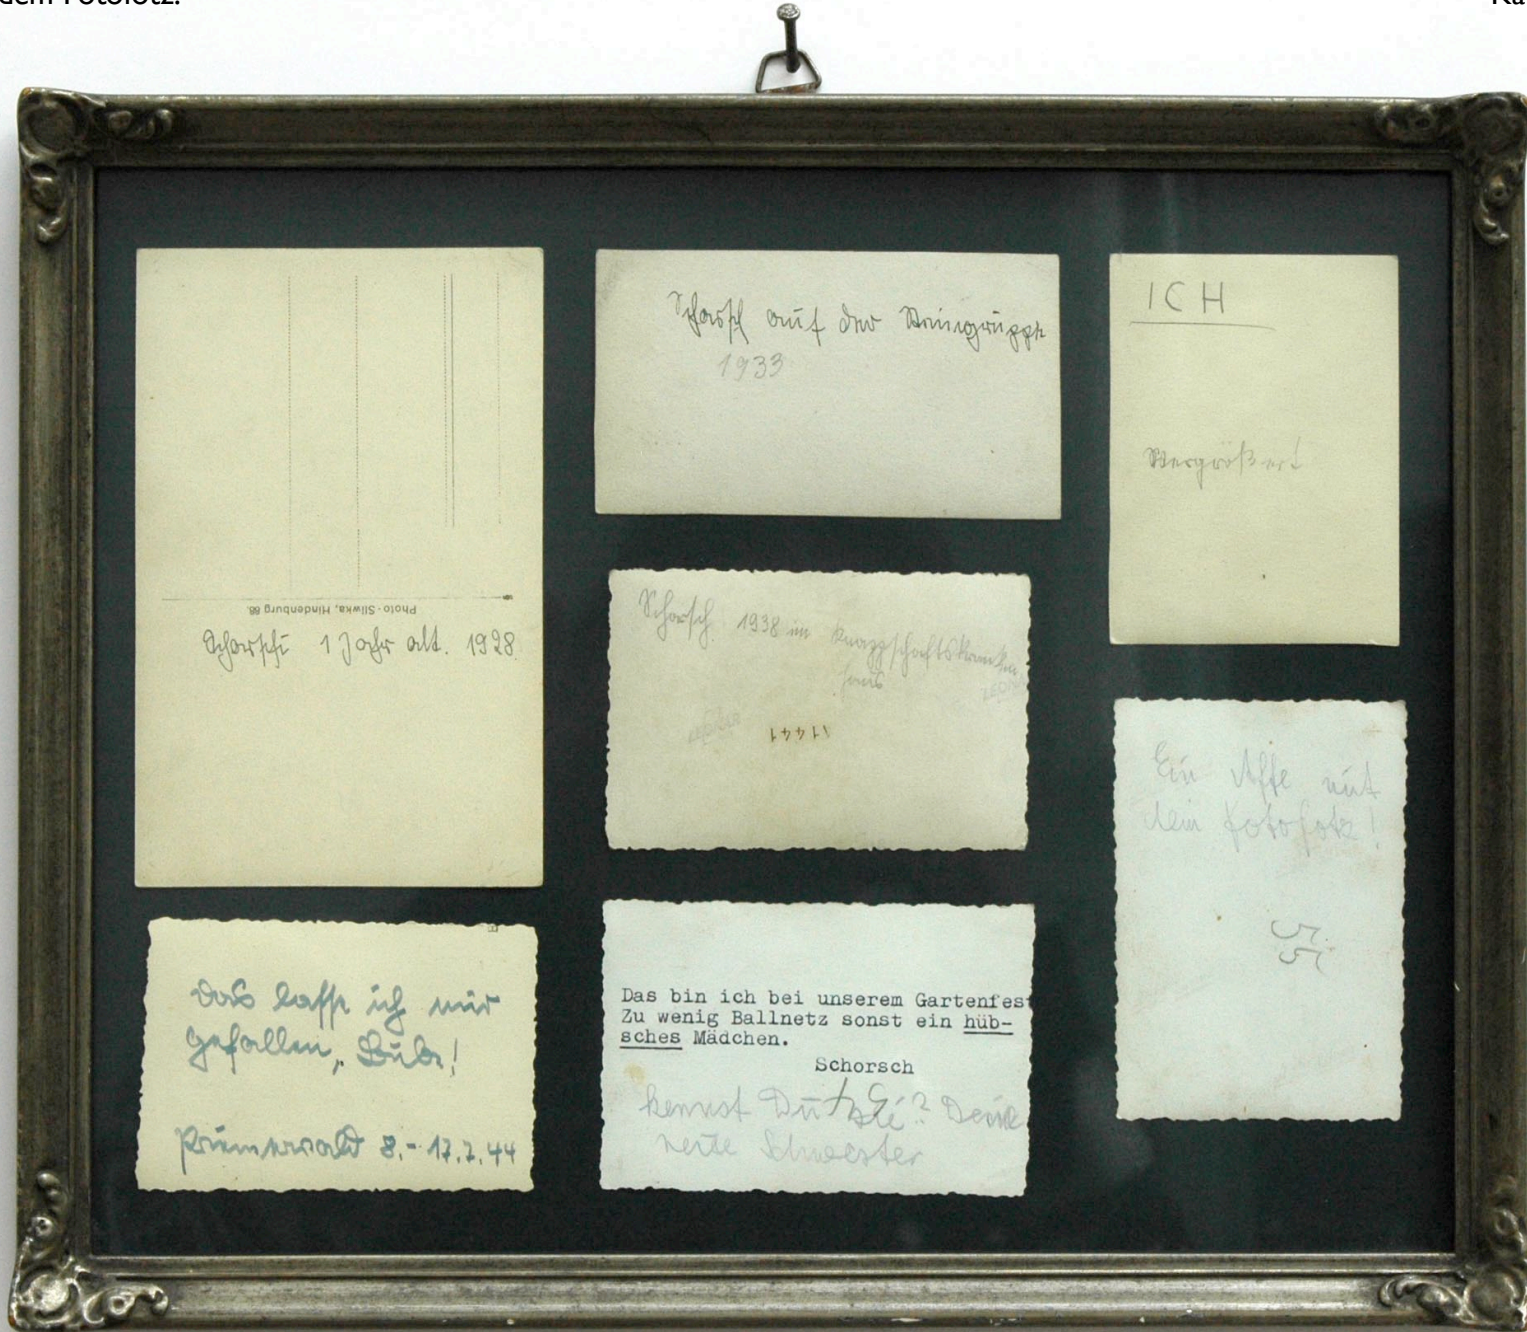 dem Fotofotz.
Photo-Sliwka, Hindenburg OS.
Schorschi 1 Jahr alt. 1928
Schorsch auf der Steingruppe
1933
ICH
Vergrößert
Schorsch 1938 im Knappschaftskranken
haus
11441
Ein Affe mit
dem Fotofotz!
55
Das lasse ich mir
gefallen, Bube!
8.- 17.7.44
Das bin ich bei unserem Gartenfest
Zu wenig Ballnetz sonst ein hüb-
sches Mädchen.
Schorsch
kennst Du sie? Deine
neue Schwester